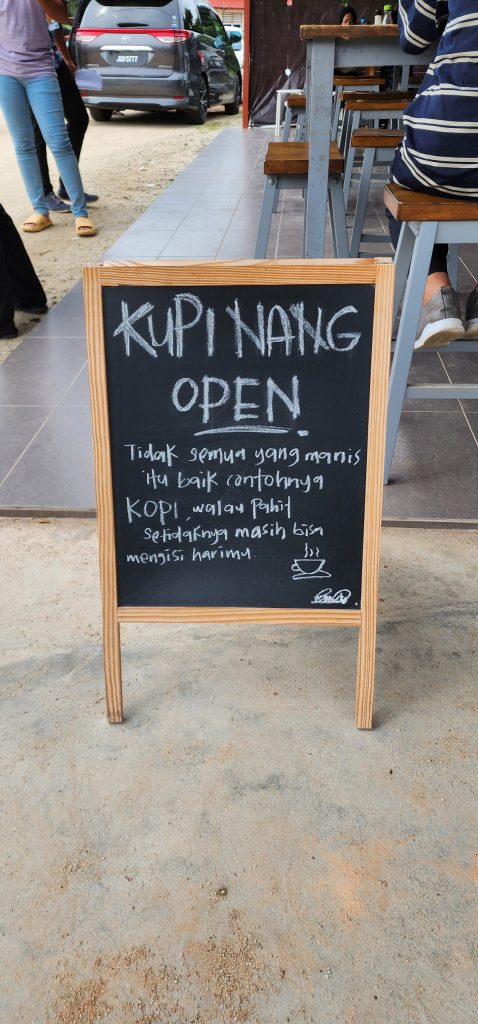 JQD5777
KUPI NANG
OPEN.
Tidak semua yang manis
itu baik contohnya
KOPI, walau Pahit
setidaknya masih bisa
mengisi harimu.